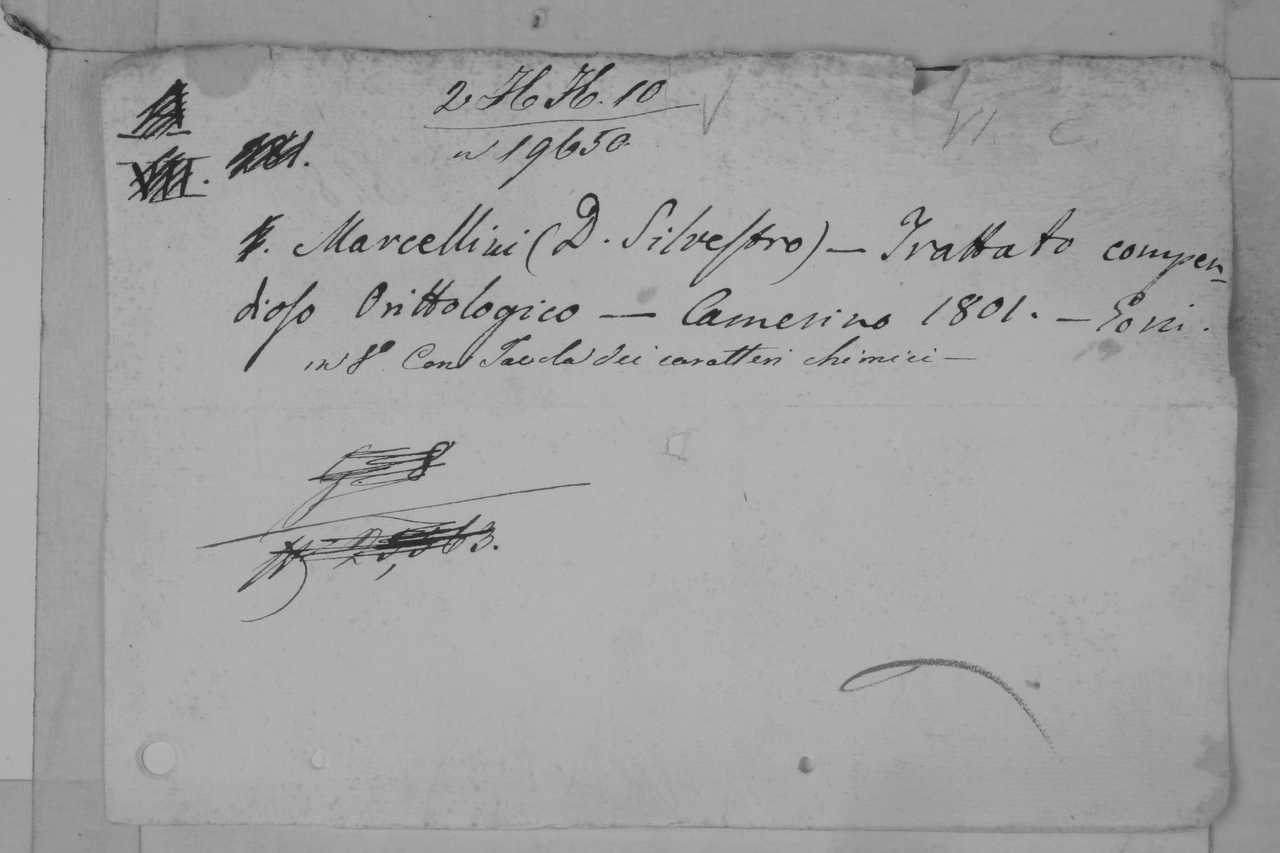 2 H H. 10
n 19650
VI C
Marcellini (D. Silvestro) — Trattato compen-
dioso Orittologico — Camerino 1801. — Gori.
in 8° Con Tavola dei caratteri chimici —